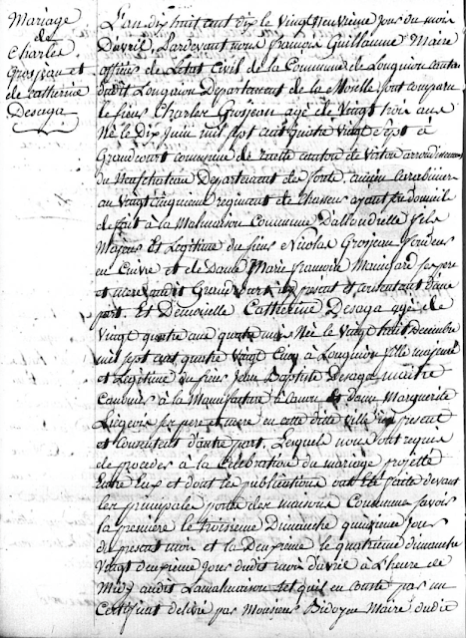 Mariage
de
Charles
Grosjean et
de Catherine
Desaga
L'an dix huit cent dix le Vingt Neuvieme Jour du mois
D'avril, Pardevant nous françois Guillaume Maire
officier de L'état Civil de la Commune de Longuion canton
dudit Longuion Departement de la Moselle sont comparu
le sieur Charles Grosjean agé de Vingt trois ans
Né le Dix Juin mil sept cent quatre Vingt sept à
Grandcourt commune de canton de Virton arrondissement
du Neufchateau Departement de foret, ancien carabinier
au Vingt Cinquieme regiment de Chasseurs ayant son domicile
de fait à la Malmaison Commune D'allondrelle fils
Majeur Et Legitime du sieur Nicolas Grosjean fondeur
en Cuivre et de Dame Marie françoise ses pere
et mere audit Grandcourt ici present et consentant d'une
part. Et Demoiselle Catherine Desaga agée de
Vingt quatre ans quatre mois Née le Vingt huit Decembre
mil sept cent quatre Vingt Cinq à Longuion fille majeure
et Legitime du sieur Jean Baptiste Desaga maitre
Canonier à la Manufacture et Dame Marguerite
Liegeois ses pere et mere en cette ditte Ville ici present
et Consentent d'autre part, Lesquels nous ont requis
de proceder à la Celebration du mariage projetté
entre Eux et dont les publications ont été faite devant
les principale porte des maison Commune savoir
la premiere le troisieme Dimanche quinzieme Jour
du present mois et la Deuxieme le quatrieme dimanche
Vingt deuxieme Jour dudit mois d'avril à L'heure de
Midy audit Lamalmaison tel qu'il en conste par un
Certificat delivré par Monsieur Maire dudit